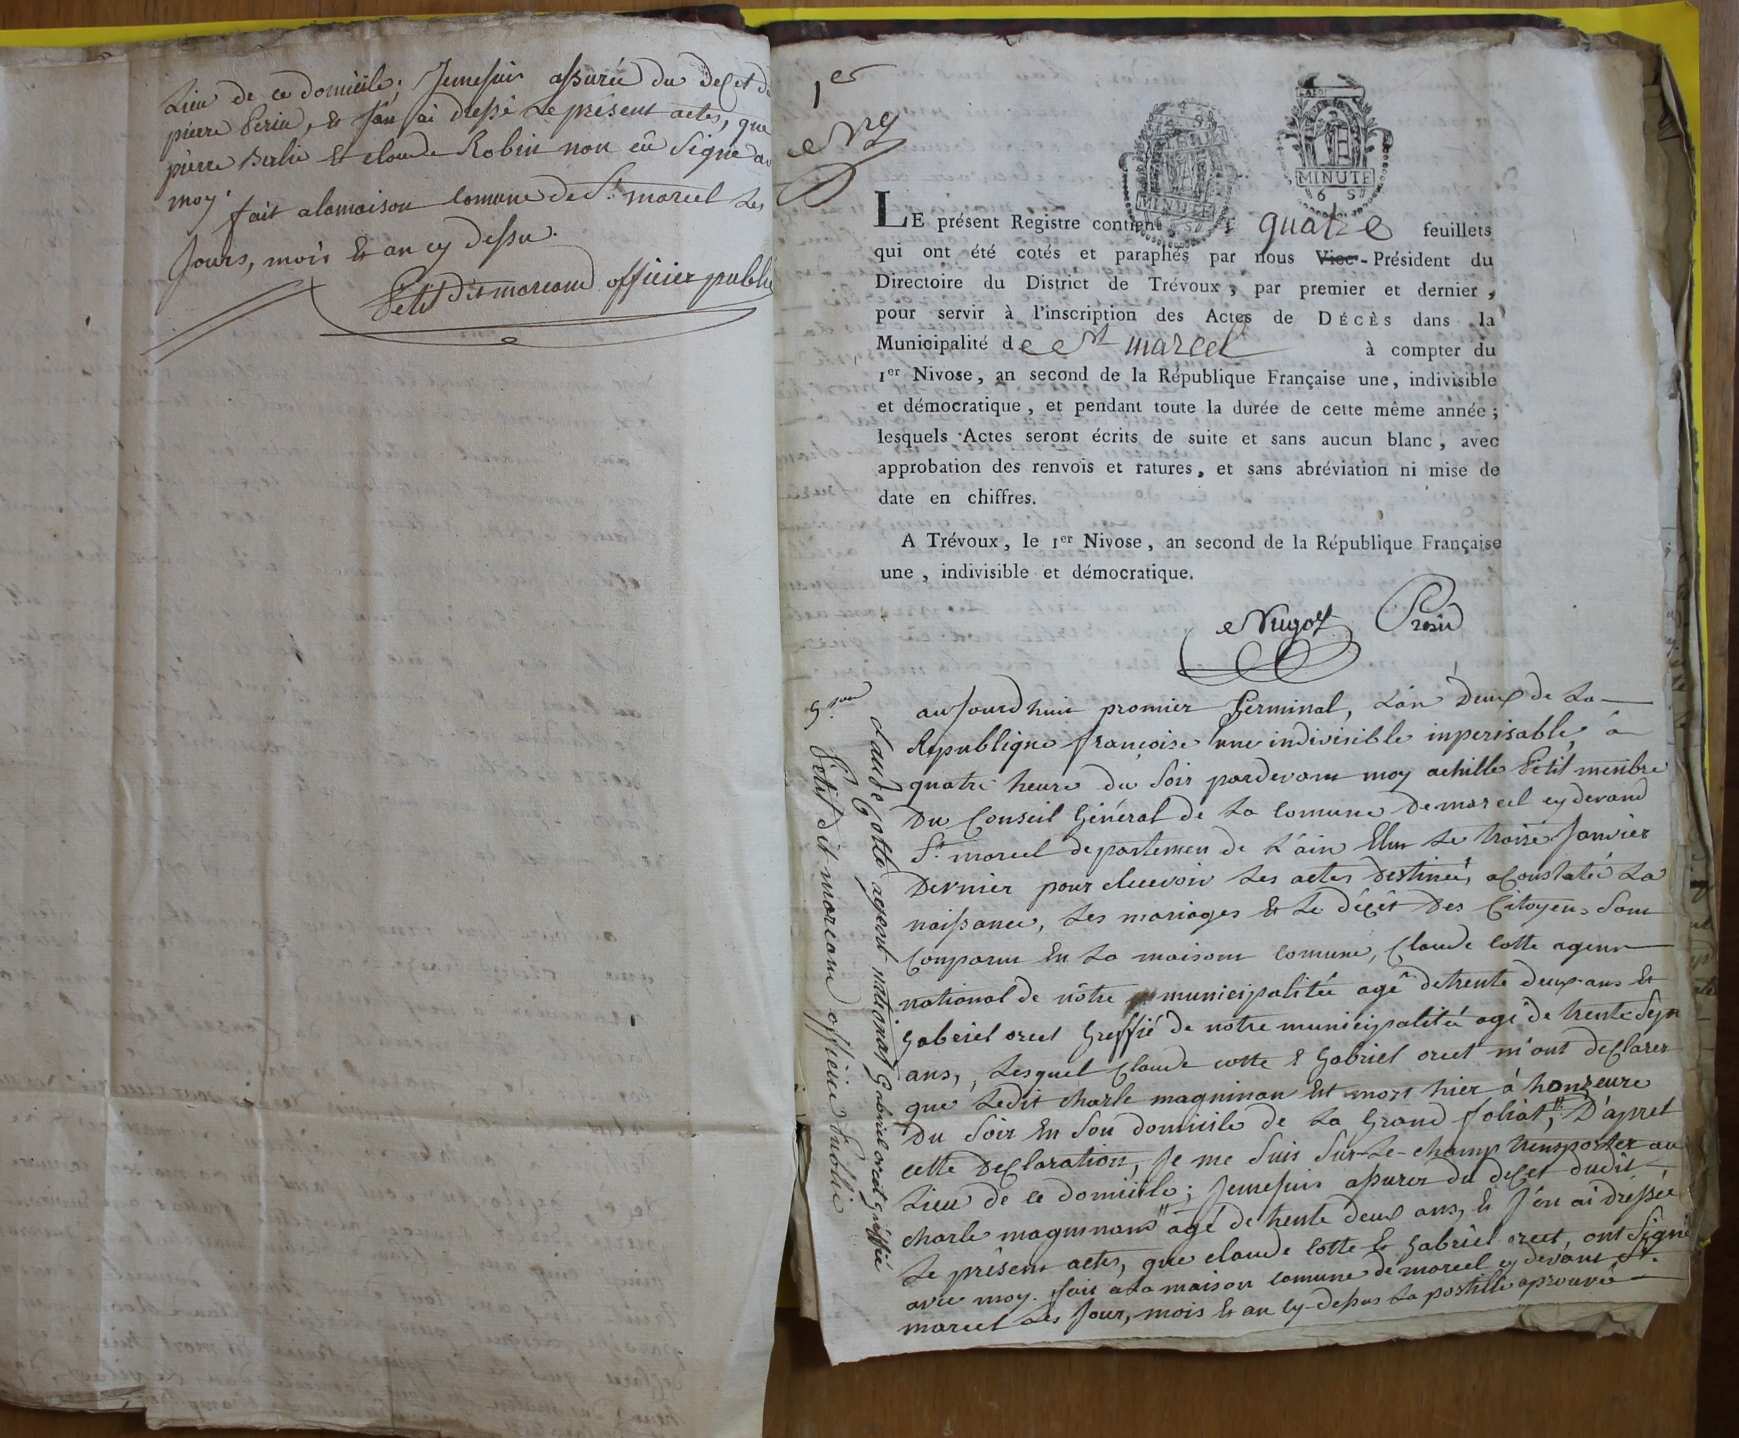 Lieu de ce domiciile; Jemesuis assurée du decet d
pierre Perin, & Jân ai dressé Le présent actes, que
pierre Berlie & claude Robin non eû Signé a
moy. fait alamaison Comune de St. marcel Les
Jours, mois & an cy dessu.
Petit dit morcand officier publi
1er
LE présent Registre contient quatre feuillets
qui ont été cotés et paraphés par nous Vice-Président du
Directoire du District de Trévoux, par premier et dernier,
pour servir à l'inscription des Actes de DÉCÈS dans la
Municipalité de St marcel à compter du
1er Nivose, an second de la République Française une, indivisible
et démocratique, et pendant toute la durée de cette même année;
lesquels Actes seront écrits de suite et sans aucun blanc, avec
approbation des renvois et ratures, et sans abréviation ni mise de
date en chiffres.
A Trévoux, le 1er Nivose, an second de la République Française
une, indivisible et démocratique.
MINUTE
MINUTE
6 S
aujourdhuit promier Germinal, L'an Deux de La
Republique françoise une indivisible inperisable, á
quatre heure du Soir pardevant moy achille Petit menbre
Du Conseil Général de La Comune De marcel cy devand
St. marcel departemen de L'ain Elu Le traise Janvier
Dernier pour Recevoir Les actes Destinés, aConstatée La
naissance, Les mariages & Le décêt Des Citoyens Sont
Conparue En La maisont Comune, Claude Cotte agent
national de nôtre municipalitée agê detrente deux ans &
Gabriel orcet Greffié de notre municipalitée agé de trente Sept
ans, Lesquel Claude Cotte & Gabriel orcet m'ont declarer
que Ledit charle magninan Est mort hier á honzeure
Du Soir En Son domicile de La Grand foliat, D'apret
cette Declaration, Je me Suis Sur-Le-champ trensporter au
Lieu de ce domiïile; Jemesuis assurer du decet dudit
charle magninand agé de trente deux ans, & J'en ai dréssée
Le présent actes, que claude Cotte & Gabriel orcet, ont Signé
avec moy. fait aLa maison Comune de marcel cy devant St.
marcel Les Jour, mois & an cy-dessus La postille aprouvé
Claude Cotte agent national Gabriel orcet Greffié
Petit dit morcand officier Public